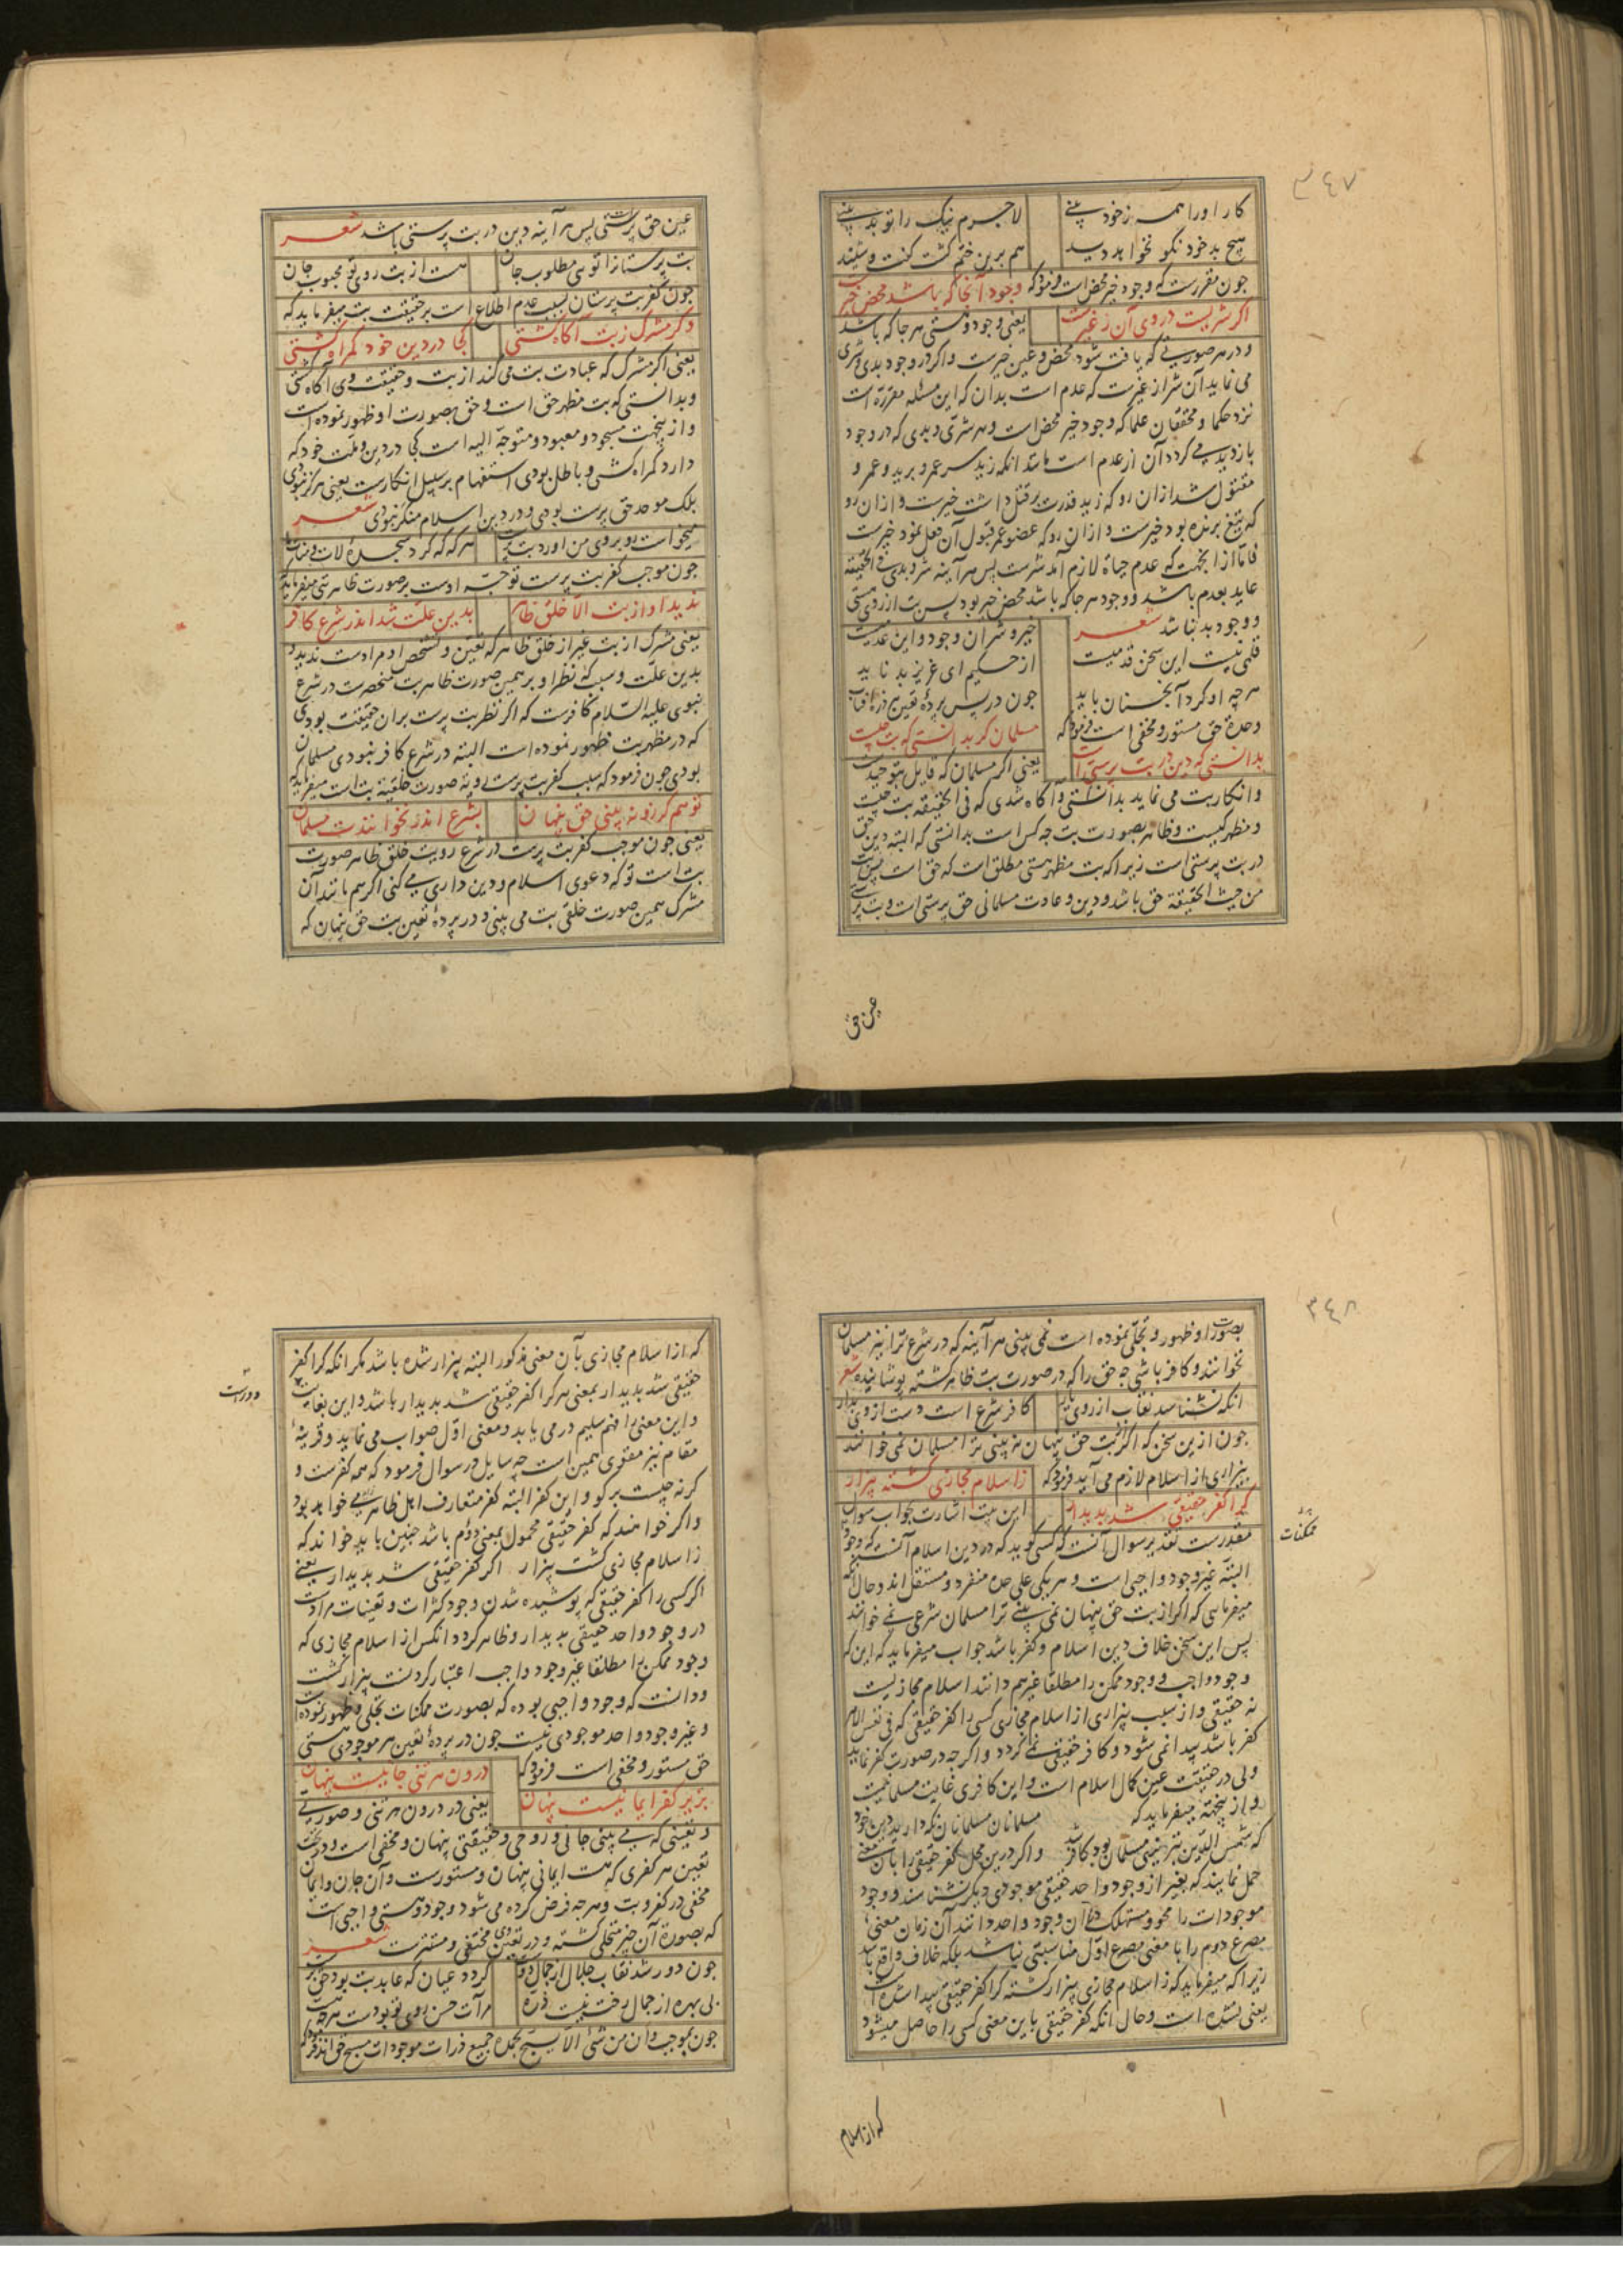 ۳۴۷
کار او را همه ز خود بینی لاجرم نیک را تو بد بینی
هیچ بد خود نکو نخواهد دید هم برین ختم گشت گفت و شنید
چون مقررست که وجود خیر محض است فرمود که وجود آنجا که باشد محض خیرست
اگر شریست در وی آن ز غیرست یعنی وجود و هستی هر جا که باشد
و در هر صورتی که یافت شود محض و عین خیرست و اگر در وجود بدی و شری
می نماید آن شر از غیرست که عدم است بدان که این مسئله مقررست
نزد حکما و محققان علما که وجود خیر محض است و هر شری و بدی که در وجود
بازدید می گردد آن از عدم است مانند آنکه زید سر عمرو برید و عمرو
مقتول شد از آن رو که زید قدرت بر قتل داشت خیرست و از آن رو
که تیغ برنده بود خیرست و از آن رو که عضو عمرو قبول آن فعل نمود خیرست
فاما از آنجهت که عدم حیاة لازم آمد شرست پس هر آینه شر و بدی فی الحقیقه
عاید بعدم باشد و وجود هر جا که باشد محض خیر بود پس بت از روی هستی
و وجود بد نباشد شعر خیر و شر آن وجود و این عدمیست
قلمی نیست این سخن قدمیست از حکیم ای عزیز بد ناید
هر چه او کرد آنچنان باید چون در پس پرده تعین هر ذره آفتاب
وحدة حق مستور و مخفی است فرمود که مسلمان گر بدانستی که بت چیست
بدانستی که دین در بت پرستی است یعنی اگر مسلمان که قایل بتوحید
و انکار بت می نماید بدانستی و آگاه شدی که فی الحقیقه بت چیست
و مظهر کیست و ظاهر بصورت بت چه کس است بدانستی که البته دین حق
در بت پرستی است زیرا که بت مظهر هستی مطلق است که حق است پس بت
من حیث الحقیقة حق باشد و دین و عادت مسلمانی حق پرستی است و بت پرستی
عین حق
عین حق پرستی پس هر آینه دین در بت پرستی باشد شعر
بت پرستانرا تویی مطلوب جان هست از بت روی تو محبوب جان
چون کفر بت پرستان بسبب عدم اطلاع است بر حقیقت بت میفرماید که
و گر مشرک ز بت آگاه گشتی کجا در دین خود گمراه گشتی
یعنی اگر مشرک که عبادت بت می کند از بت و حقیقت وی آگاه گشتی
و بدانستی که بت مظهر حق است و حق بصورت او ظهور نموده است
و از ینجهت مسجود و معبود و متوجه الیه است کجا در دین و ملت خود که
دارد گمراه گشتی و باطل بودی استفهام بر سبیل انکارست یعنی هرگز نبودی
بلک موحد حق پرست بودی و در دین اسلام منکر نبودی شعر
میخواست بو بروی من آورد هر که که کرد سجده لات و منات
چون موجب کفر بت پرست توجه اوست بر صورت ظاهر بت میفرماید
ندید او از بت الا خلق ظاهر بدین علت شد اندر شرع کافر
یعنی مشرک از بت غیر از خلق ظاهر که تعین و تشخص او مرادست ندید
بدین علت و سبب که نظر او بر همین صورت ظاهر بت منحصرست در شرع
نبوی علیه السلام کافرست که اگر نظر بت پرست بران حقیقت بودی
که در مظهر بت ظهور نموده است البته در شرع کافر نبودی مسلمان
بودی چون فرمود که سبب کفر بت پرست رویة صورت خلقیه بت است میفرماید که
تو هم گر زو نه بینی حق پنهان بشرع اندر نخوانندت مسلمان
یعنی چون موجب کفر بت پرست در شرع رویت خلق ظاهر صورت
بت است تو که دعوی اسلام و دین داری می کنی اگر هم مانند آن
مشرک همین صورت خلقی بت می بینی و در پرده تعین بت حق پنهان که
۳۴۸
بصورت او ظهور و تجلی نموده است نمی بینی هر آینه که در شرع ترا نیز مسلمان
نخوانند و کافر باشی چه حق را که در صورت بت ظاهر گشته پوشانیده شعر
آنکه نشناسد نقاب از روی یار کافر شرع است دست از وی بدار
چون ازین سخن که اگر از بت حق پنهان نه بینی ترا مسلمان نمی خوانند
بیزاری از اسلام لازم می آید فرمود که ز اسلام مجازی گشته بیزار
کرا کفر حقیقی شد پدیدار این بیت اشارت بجواب سوال
مقدرست تقدیر سوال آنست که کسی گوید که در دین اسلام آنست که وجود
ممکنات
البته غیر وجود واجبی است و هر یکی علی حده منفرد و مستقل اند و حال آنکه
میفرمایی که اگر از بت حق پنهان نمی بینی ترا مسلمان شرعی نمی خوانند
پس این سخن خلاف دین اسلام و کفر باشد جواب میفرماید که این که
وجود واجب و وجود ممکن را مطلقا غیر هم دانند اسلام مجازیست
نه حقیقی و از سبب بیزاری از اسلام مجازی کسی را کفر حقیقی که فی نفس الامر
کفر باشد پیدا نمی شود و کافر حقیقی نمی گردد و اگر چه در صورت کفر نماید
ولی در حقیقت عین کمال اسلام است و این کافری غایت مسلمانیست
و از ینجهته میفرماید که مسلمانان مسلمانان نگه دارید دین خود
که شمس الدین تبریزی مسلمان بود کافر شد و اگر درین محل کفر حقیقی را بآن معنی
حمل نمایند که بغیر از وجود واحد حقیقی موجودی دیگر نشناسند و وجود
موجودات را محو و مستهلک در آن وجود واحد دانند آن زمان معنی
مصرع دوم را با معنی مصرع اول مناسبتی نباشد بلکه خلاف واقع باشد
زیرا که میفرماید که ز اسلام مجازی بیزار گشته کرا کفر حقیقی پیدا شده است
یعنی نشده است و حال آنکه کفر حقیقی باین معنی کسی را حاصل میشود
که از اسلام
که از اسلام مجازی بآن معنی مذکور البته بیزار شده باشد مگر آنکه کرا کفر
حقیقی شد پدیدار بمعنی هر کرا کفر حقیقی شد پدیدار باشد و این بغایت
دورست
و این معنی را فهم سلیم در می یابد و معنی اول صواب می نماید و قرینه
مقام نیز مقوی همین است چه سایل در سوال فرمود که همه کفرست و
گرنه چیست بر گو و این کفر البته کفر متعارف اهل ظاهر می خواهد بود
و اگر خواهند که کفر حقیقی محمول بمعنی دوم باشد چنین باید خواند که
ز اسلام مجازی گشت بیزار اگر کفر حقیقی شد پدیدار یعنی
اگر کسی را کفر حقیقی که پوشیده شدن وجود کثرات و تعینات مرادست
در وجود واحد حقیقی پدیدار و ظاهر گردد آنکس از اسلام مجازی که
وجود ممکن را مطلقا غیر وجود واجب اعتبار کردنست بیزار گشت
و دانست که وجود واجبی بوده که بصورت ممکنات تجلی و ظهور نموده است
و غیر وجود واحد موجودی نیست چون در پرده تعین هر موجودی هستی
حق مستور و مخفی است فرمود که درون هر تنی جانیست پنهان
بزیر کفر ایمانیست پنهان یعنی در درون هر تنی و صورتی
و تعینی که می بینی جانی و روحی و حقیقتی پنهان و مخفی است و در تحت
تعین هر کفری که هست ایمانی پنهان و مستورست و آن جان و ایمان
مخفی در کفر و بت و هر چه فرض کرده می شود وجود و هستی واجبی است
که بصورة آن چیز متجلی گشته و در تعین وی مختفی و مستترست شعر
چون دور شد نقاب جلال از جمال دوست گردد عیان که عابد بت بود حق پرست
بی بهره از جمال رخت نیست ذره مرآت حسن روی تو بودست هر چه هست
چون بموجب و ان من شئ الا یسبح بحمده جمیع ذرات موجودات مسبح حق اند فرمود که